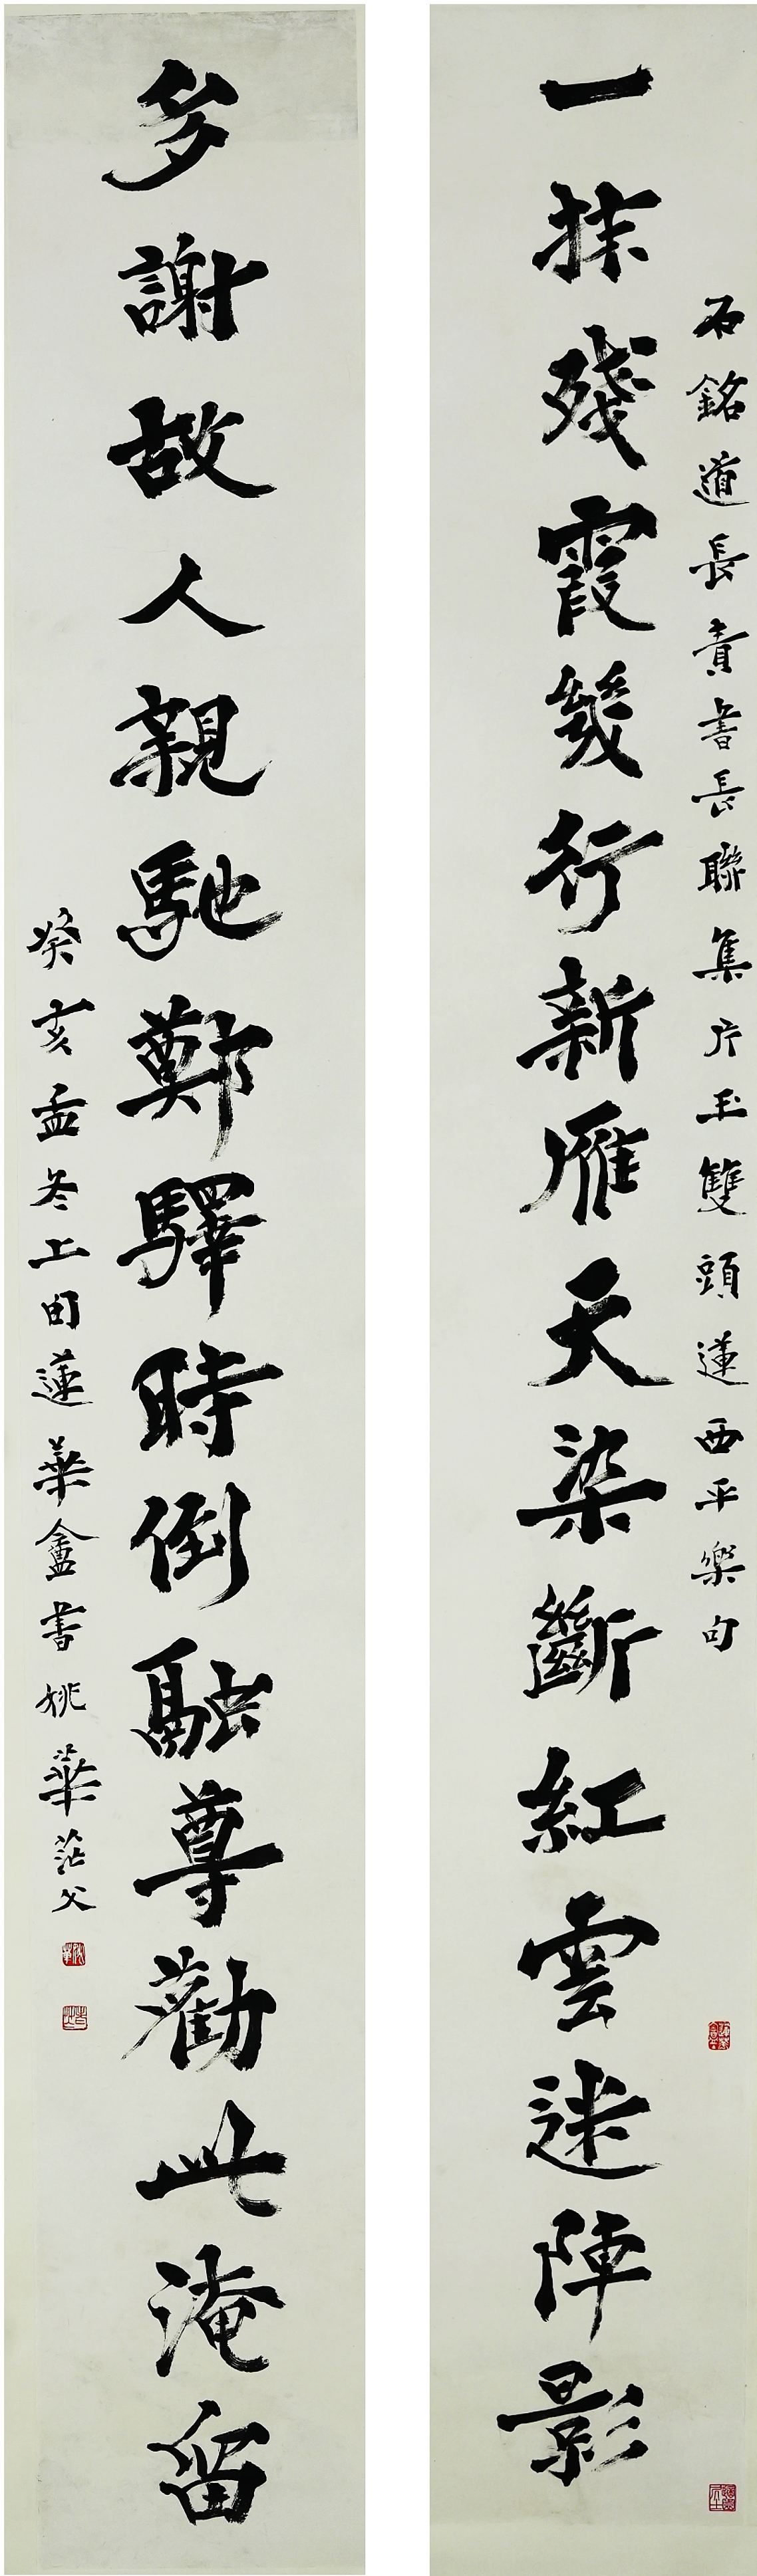 石銘道長責書長聯集片玉雙頭蓮西平樂句
一抹殘霞幾行新雁天染斷紅雲迷陣影
多謝故人親馳鄭驛時倒融尊勸此淹留
癸亥孟冬上旬蓮華盦書姚華茫父